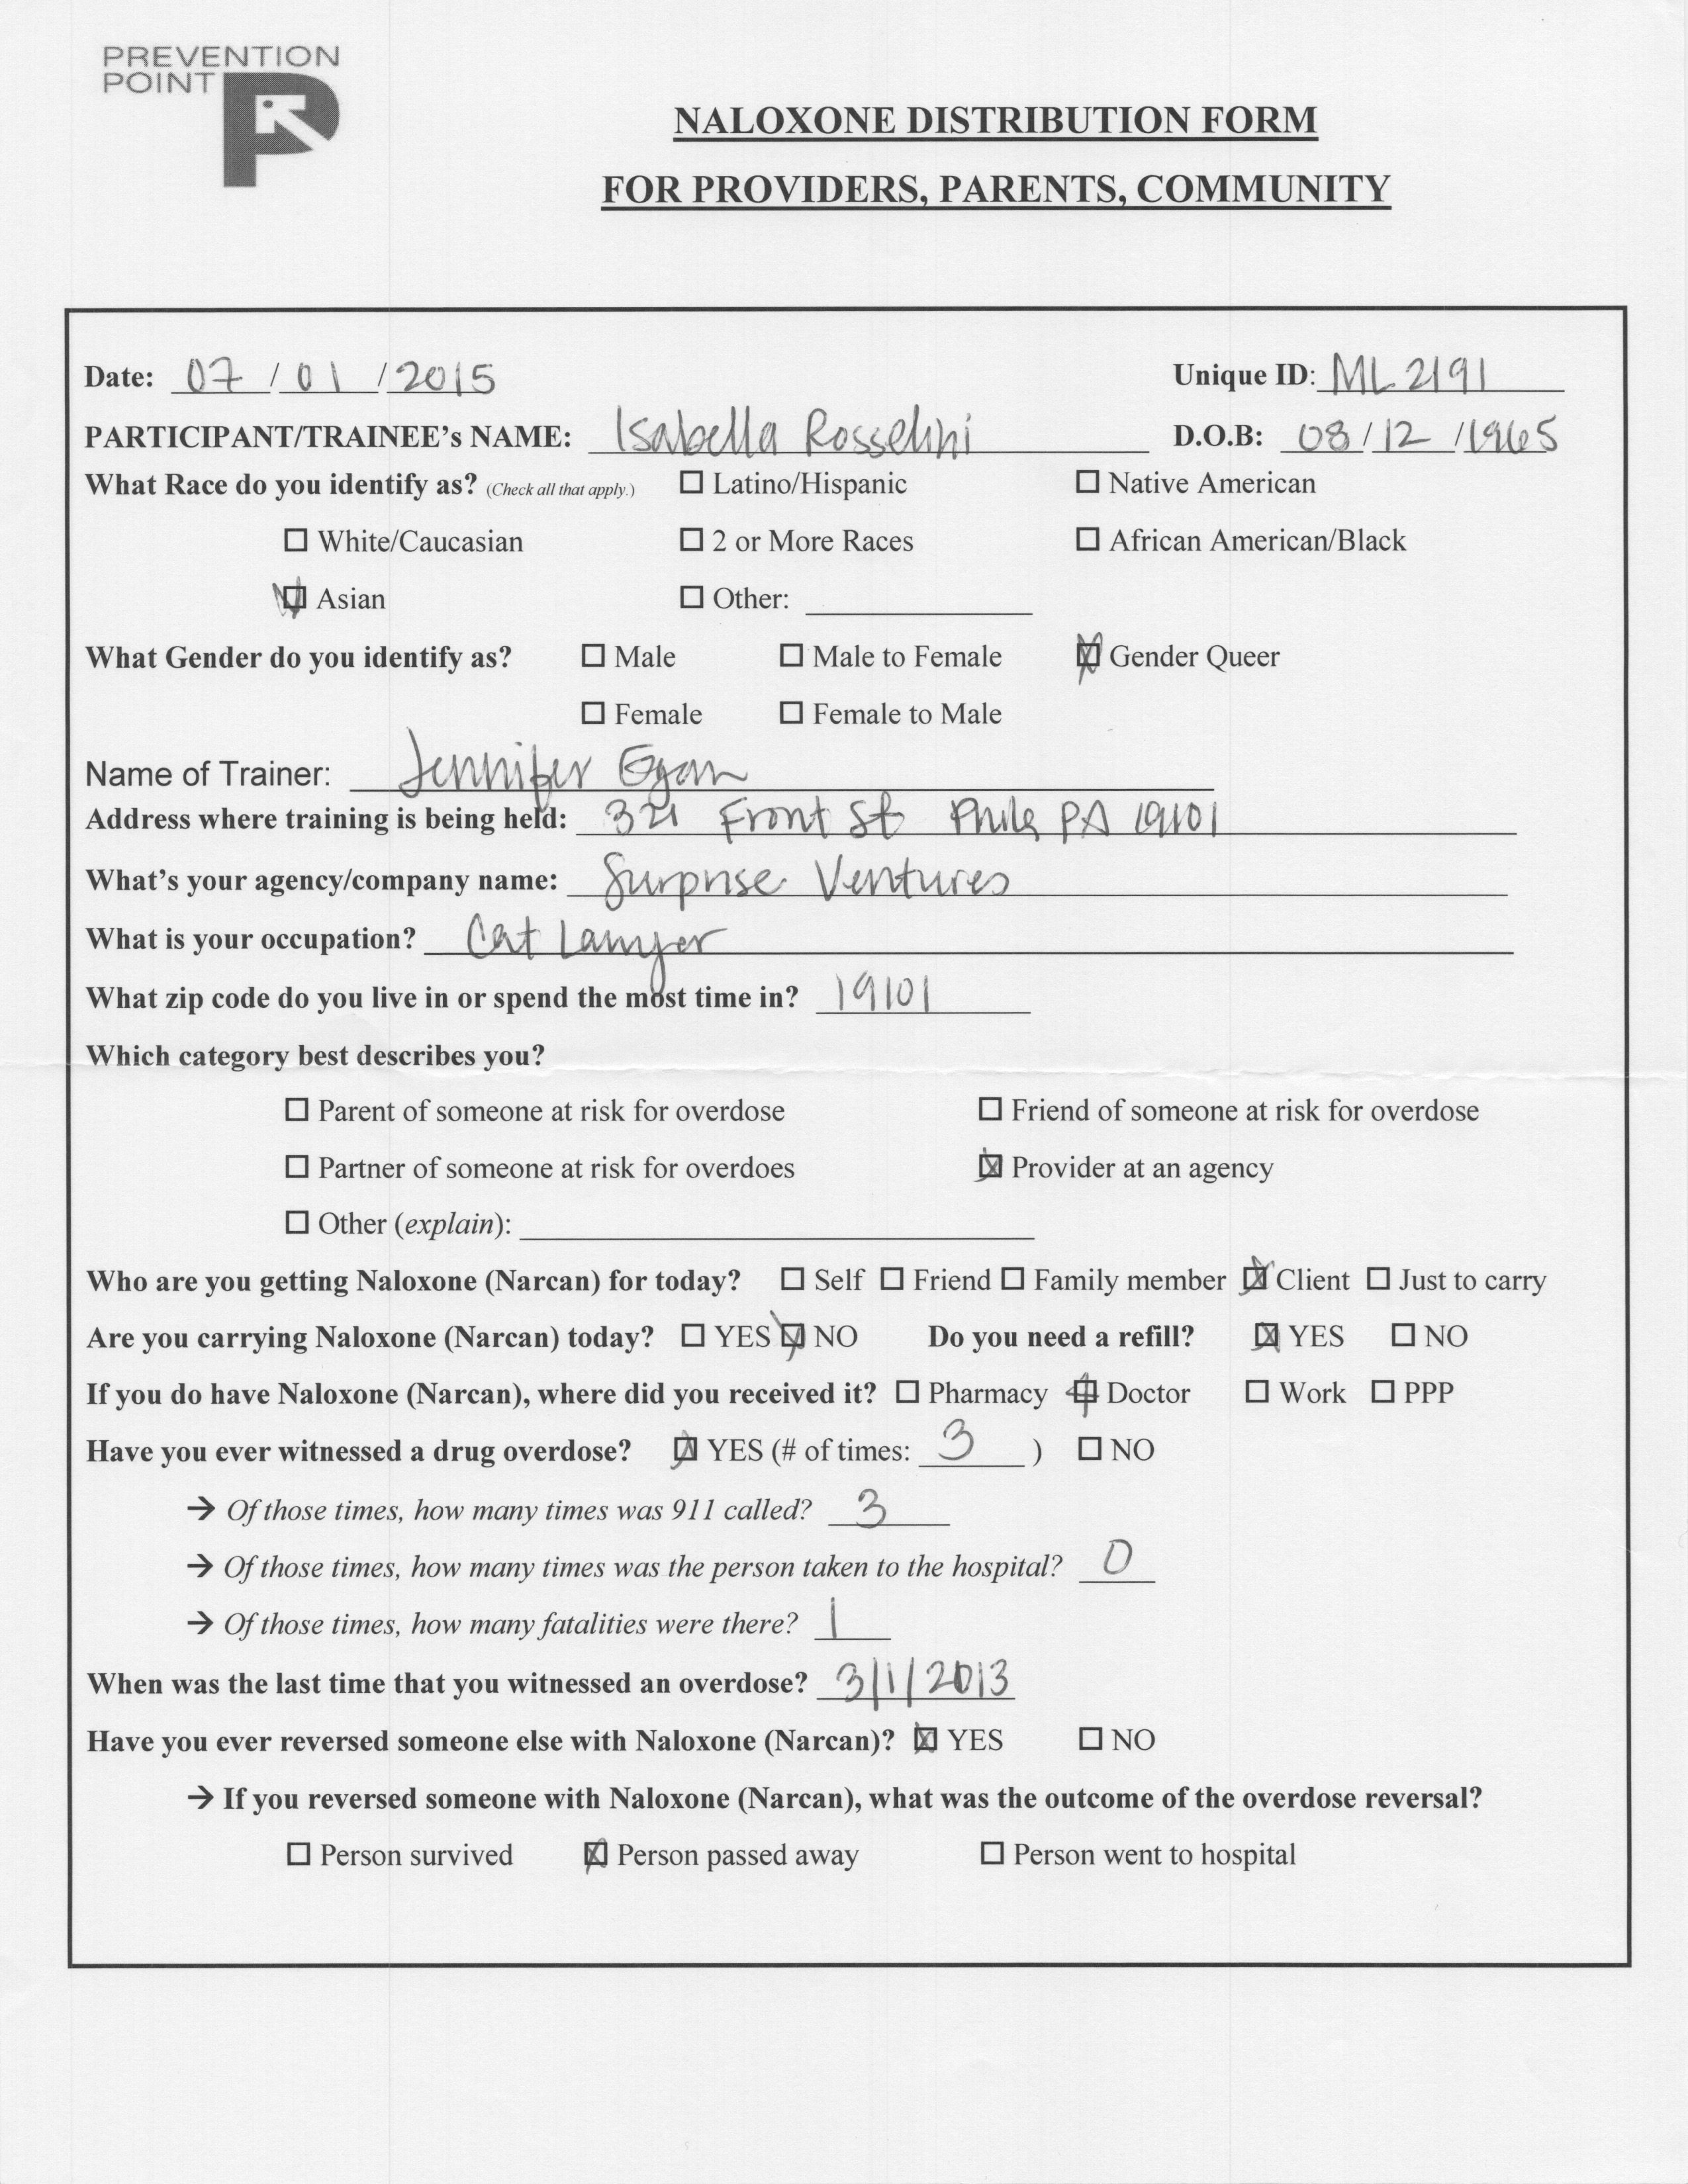 PREVENTION
POINT
NALOXONE DISTRIBUTION FORM
FOR PROVIDERS, PARENTS, COMMUNITY
Date: 07 / 01 / 2015 Unique ID: ML2191
PARTICIPANT/TRAINEE's NAME: Isabella Rosselini D.O.B: 08 / 12 / 1965
What Race do you identify as? (Check all that apply.) ☐ Latino/Hispanic ☐ Native American
☐ White/Caucasian ☐ 2 or More Races ☐ African American/Black
☒ Asian ☐ Other:
What Gender do you identify as? ☐ Male ☐ Male to Female ☒ Gender Queer
☐ Female ☐ Female to Male
Name of Trainer: Jennifer Egan
Address where training is being held: 321 Front St Phila PA 19101
What's your agency/company name: Surprise Ventures
What is your occupation? Cat Lawyer
What zip code do you live in or spend the most time in? 19101
Which category best describes you?
☐ Parent of someone at risk for overdose ☐ Friend of someone at risk for overdose
☐ Partner of someone at risk for overdoes ☒ Provider at an agency
☐ Other (explain):
Who are you getting Naloxone (Narcan) for today? ☐ Self ☐ Friend ☐ Family member ☒ Client ☐ Just to carry
Are you carrying Naloxone (Narcan) today? ☐ YES ☒ NO Do you need a refill? ☒ YES ☐ NO
If you do have Naloxone (Narcan), where did you received it? ☐ Pharmacy ☒ Doctor ☐ Work ☐ PPP
Have you ever witnessed a drug overdose? ☒ YES (# of times: 3 ) ☐ NO
→ Of those times, how many times was 911 called? 3
→ Of those times, how many times was the person taken to the hospital? 0
→ Of those times, how many fatalities were there? 1
When was the last time that you witnessed an overdose? 3/1/2013
Have you ever reversed someone else with Naloxone (Narcan)? ☒ YES ☐ NO
→ If you reversed someone with Naloxone (Narcan), what was the outcome of the overdose reversal?
☐ Person survived ☒ Person passed away ☐ Person went to hospital